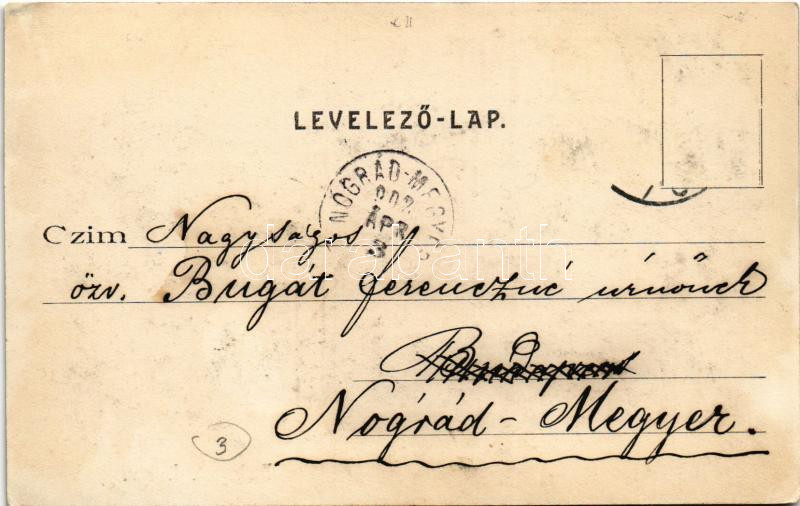 LEVELEZŐ-LAP.
NÓGRÁD-MEGYER
902
ÁPR
3
Czim Nagyságos
özv. Bugát Ferenczné úrnőnek
Budapest
Nógrád-Megyer.
3
darabanth